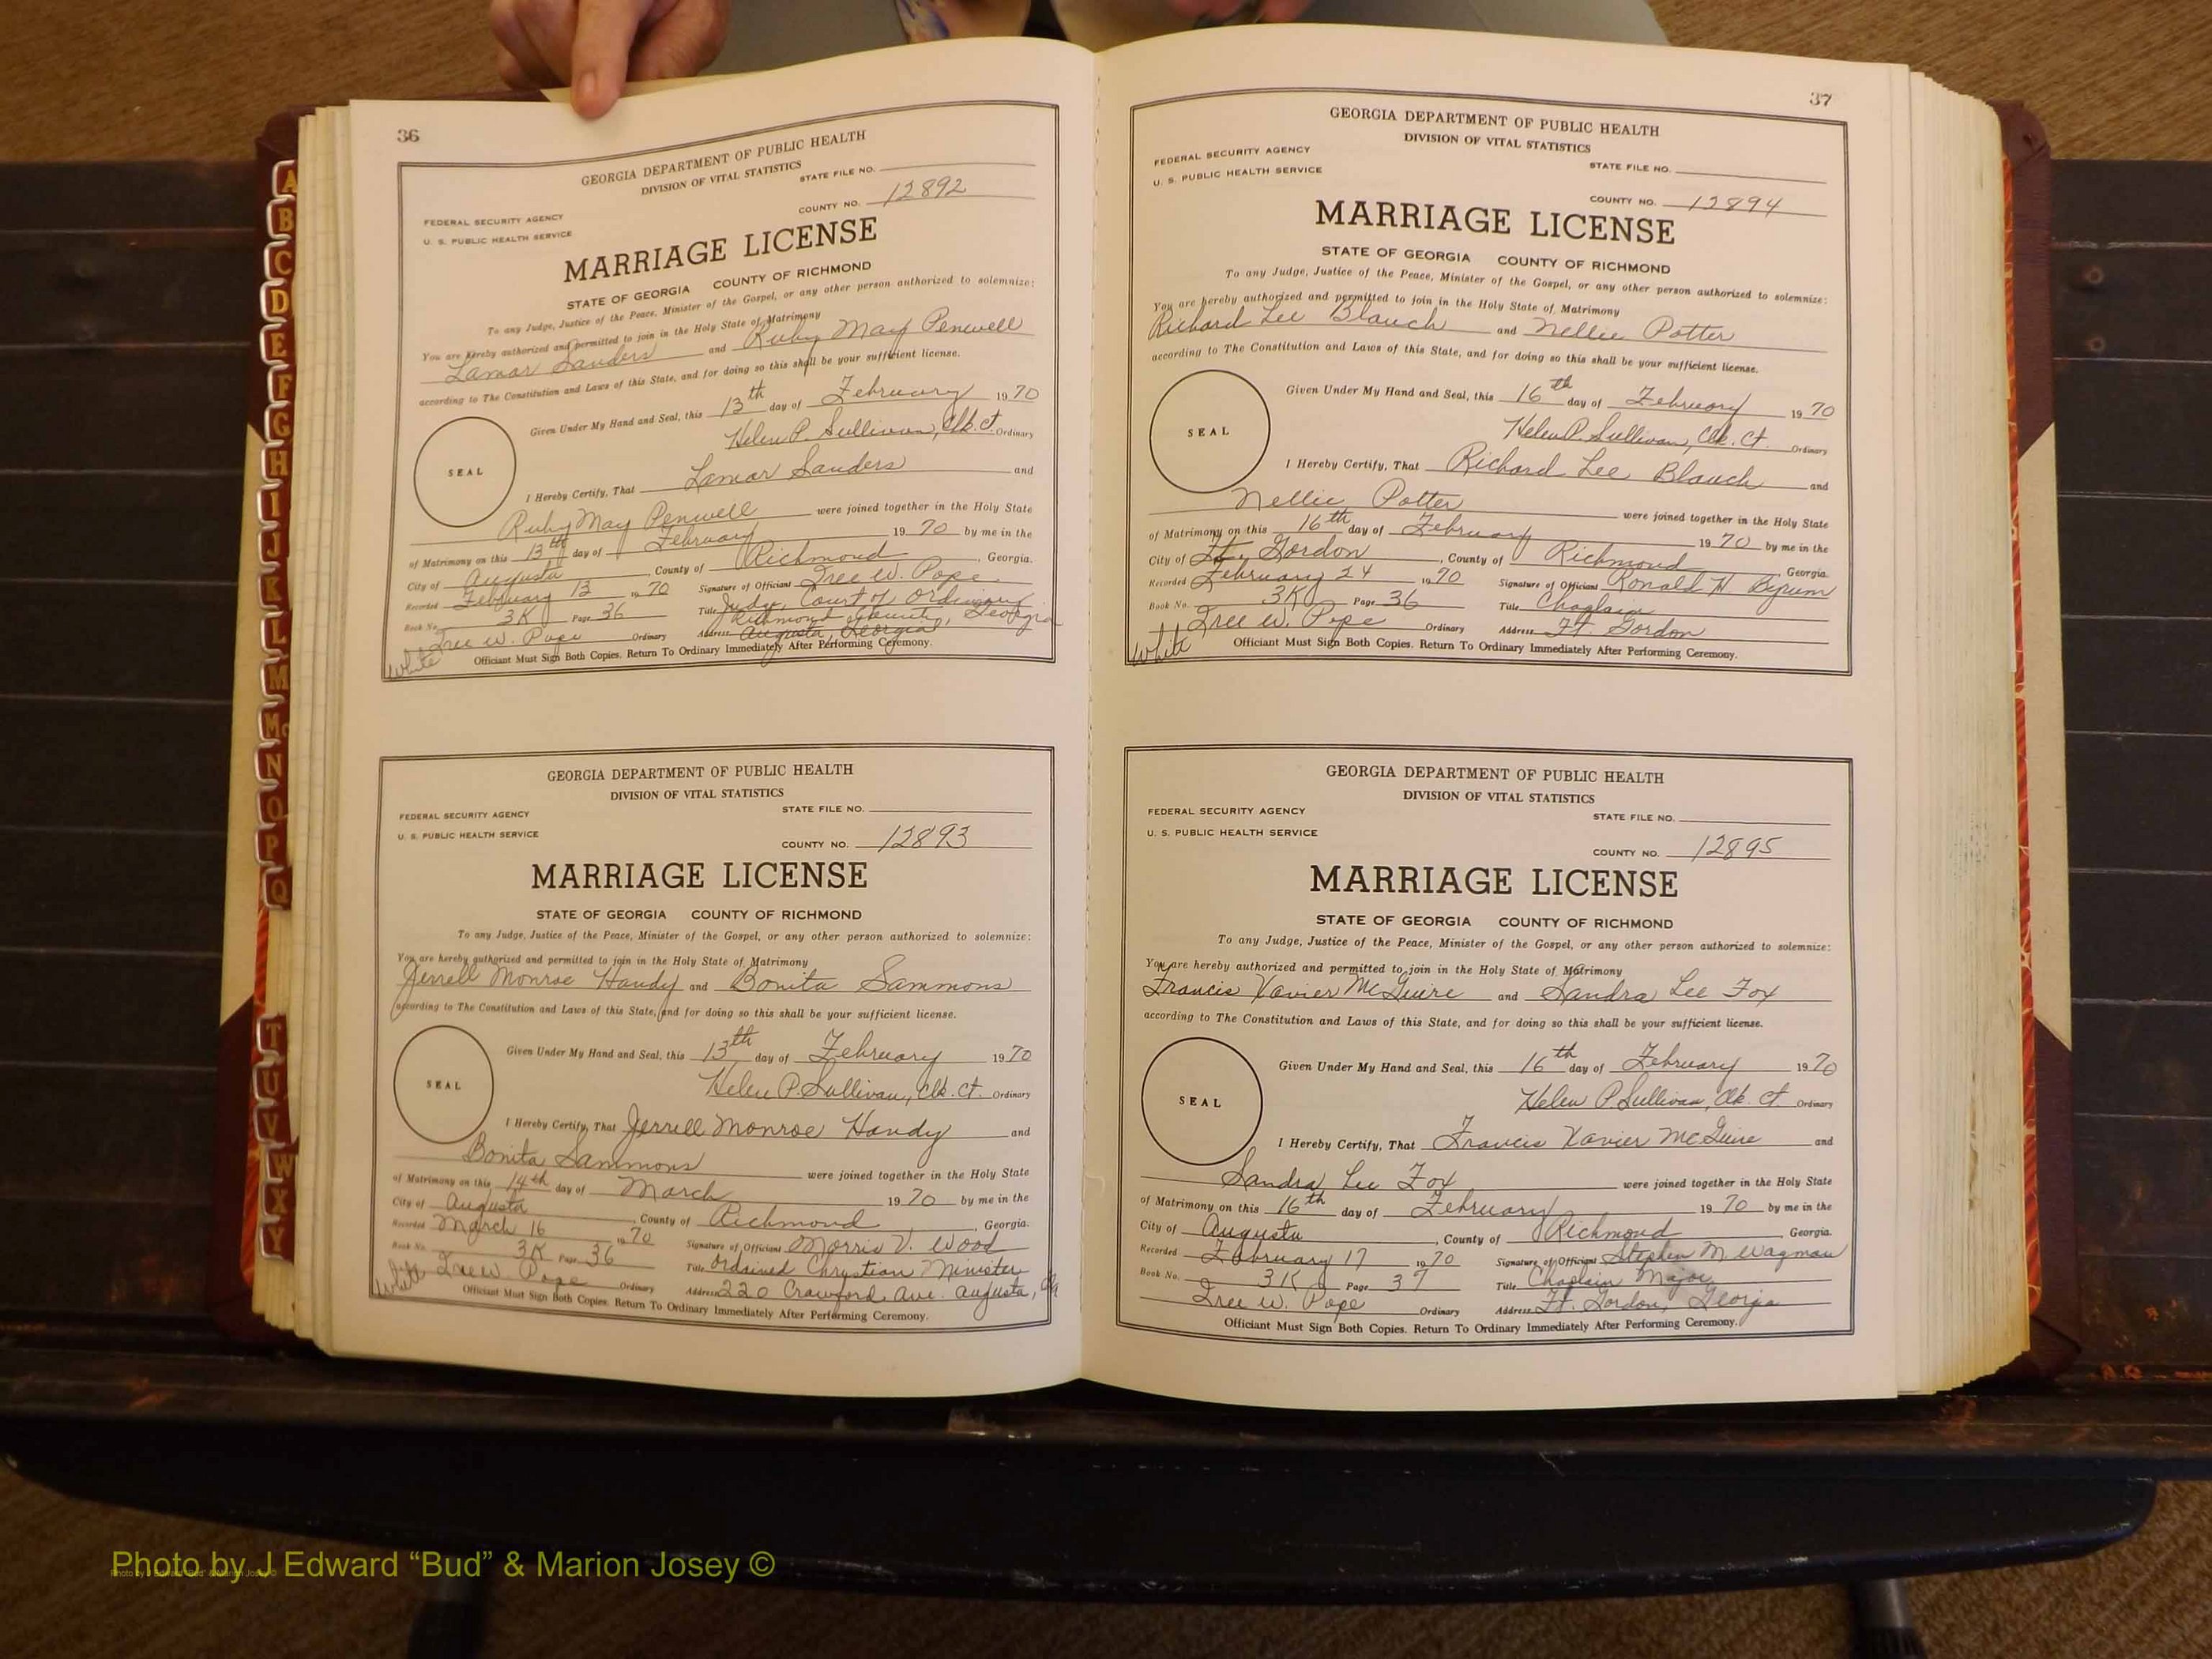 36
GEORGIA DEPARTMENT OF PUBLIC HEALTH
DIVISION OF VITAL STATISTICS
STATE FILE NO.
COUNTY NO. 12892
FEDERAL SECURITY AGENCY
U. S. PUBLIC HEALTH SERVICE
MARRIAGE LICENSE
STATE OF GEORGIA COUNTY OF RICHMOND
To any Judge, Justice of the Peace, Minister of the Gospel, or any other person authorized to solemnize:
You are hereby authorized and permitted to join in the Holy State of Matrimony
Lamar Sanders and Ruby May Penwell
according to The Constitution and Laws of this State, and for doing so this shall be your sufficient license.
Given Under My Hand and Seal, this 13th day of February 1970
Helen P. Sullivan, Clk. Ct. Ordinary
SEAL
I Hereby Certify, That Lamar Sanders and
Ruby May Penwell were joined together in the Holy State
of Matrimony on this 13th day of February 1970 by me in the
City of Augusta, County of Richmond, Georgia.
Recorded February 13 1970 Signature of Officiant Iree W. Pope
Book No. 3K Page 36 Title Judge, Court of Ordinary
Richmond County, Georgia
Iree W. Pope Ordinary Address Augusta, Georgia
White
Officiant Must Sign Both Copies. Return To Ordinary Immediately After Performing Ceremony.
GEORGIA DEPARTMENT OF PUBLIC HEALTH
DIVISION OF VITAL STATISTICS
STATE FILE NO.
FEDERAL SECURITY AGENCY
U. S. PUBLIC HEALTH SERVICE
COUNTY NO. 12893
MARRIAGE LICENSE
STATE OF GEORGIA COUNTY OF RICHMOND
To any Judge, Justice of the Peace, Minister of the Gospel, or any other person authorized to solemnize:
You are hereby authorized and permitted to join in the Holy State of Matrimony
Jerrell Monroe Handy and Bonita Sammons
according to The Constitution and Laws of this State, and for doing so this shall be your sufficient license.
Given Under My Hand and Seal, this 13th day of February 1970
Helen P. Sullivan, Clk. Ct. Ordinary
SEAL
I Hereby Certify, That Jerrell Monroe Handy and
Bonita Sammons were joined together in the Holy State
of Matrimony on this 14th day of March 1970 by me in the
City of Augusta, County of Richmond, Georgia.
Recorded March 16 1970 Signature of Officiant Morris V. Wood
Book No. 3K Page 36 Title Ordained Chrystian Minister
Iree W. Pope Ordinary Address 220 Crawford Ave. Augusta, Ga
White
Officiant Must Sign Both Copies. Return To Ordinary Immediately After Performing Ceremony.
37
GEORGIA DEPARTMENT OF PUBLIC HEALTH
DIVISION OF VITAL STATISTICS
FEDERAL SECURITY AGENCY
STATE FILE NO.
U. S. PUBLIC HEALTH SERVICE
COUNTY NO. 12894
MARRIAGE LICENSE
STATE OF GEORGIA COUNTY OF RICHMOND
To any Judge, Justice of the Peace, Minister of the Gospel, or any other person authorized to solemnize:
You are hereby authorized and permitted to join in the Holy State of Matrimony
Richard Lee Blauch and Nellie Potter
according to The Constitution and Laws of this State, and for doing so this shall be your sufficient license.
Given Under My Hand and Seal, this 16th day of February 1970
Helen P. Sullivan, Clk. Ct. Ordinary
SEAL
I Hereby Certify, That Richard Lee Blauch and
Nellie Potter were joined together in the Holy State
of Matrimony on this 16th day of February 1970 by me in the
City of Ft. Gordon, County of Richmond, Georgia.
Recorded February 24 1970 Signature of Officiant Ronald H
Book No. 3K Page 36 Title Chaplain
Iree W. Pope Ordinary Address Ft. Gordon
White
Officiant Must Sign Both Copies. Return To Ordinary Immediately After Performing Ceremony.
GEORGIA DEPARTMENT OF PUBLIC HEALTH
DIVISION OF VITAL STATISTICS
FEDERAL SECURITY AGENCY
STATE FILE NO.
U. S. PUBLIC HEALTH SERVICE
COUNTY NO. 12895
MARRIAGE LICENSE
STATE OF GEORGIA COUNTY OF RICHMOND
To any Judge, Justice of the Peace, Minister of the Gospel, or any other person authorized to solemnize:
You are hereby authorized and permitted to join in the Holy State of Matrimony
Francis Xavier McGuire and Sandra Lee Fox
according to The Constitution and Laws of this State, and for doing so this shall be your sufficient license.
Given Under My Hand and Seal, this 16th day of February 1970
Helen P. Sullivan, Clk. Ct. Ordinary
SEAL
I Hereby Certify, That Francis Xavier McGuire and
Sandra Lee Fox were joined together in the Holy State
of Matrimony on this 16th day of February 1970 by me in the
City of Augusta, County of Richmond, Georgia.
Recorded February 17 1970 Signature of Officiant Stephen M. Wagman
Book No. 3K Page 37 Title Chaplain Major
Iree W. Pope Ordinary Address Ft. Gordon, Georgia
Officiant Must Sign Both Copies. Return To Ordinary Immediately After Performing Ceremony.
A
B
C
D
E
F
G
H
I
J
K
L
M
Mc
N
O
P
Q
T
U
V
W
X
Y
Photo by J Edward “Bud” & Marion Josey ©
Photo by J Edward “Bud” & Marion Josey ©